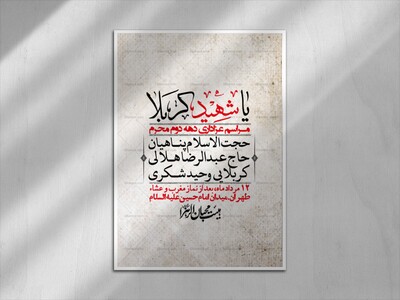 یا شهید کربلا
مراسم عزاداری دهه دوم محرم
حجت الاسلام پناهیان
حاج عبدالرضا هلالی
کربلایی وحید شکری
۱۲ مرداد ماه، بعد از نماز مغرب و عشاء
طهران، میدان امام حسین علیه السلام
هیئت محبان الزهرا